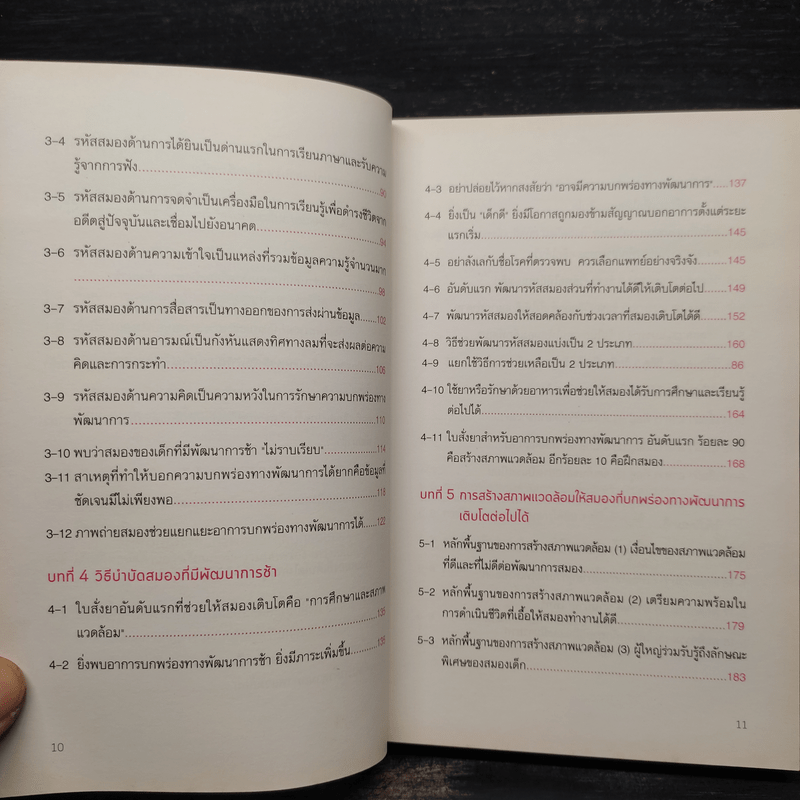 3-4 รหัสสมองด้านการได้ยินเป็นด่านแรกในการเรียนภาษาและรับความ
รู้จากการฟัง..........90
3-5 รหัสสมองด้านการจดจำเป็นเครื่องมือในการเรียนรู้เพื่อดำรงชีวิตจาก
อดีตสู่ปัจจุบันและเชื่อมไปยังอนาคต..........94
3-6 รหัสสมองด้านความเข้าใจเป็นแหล่งที่รวมข้อมูลความรู้จำนวนมาก
..........98
3-7 รหัสสมองด้านการสื่อสารเป็นทางออกของการส่งผ่านข้อมูล.......102
3-8 รหัสสมองด้านอารมณ์เป็นกังหันแสดงทิศทางลมที่จะส่งผลต่อความ
คิดและการกระทำ..........106
3-9 รหัสสมองด้านความคิดเป็นความหวังในการรักษาความบกพร่องทาง
พัฒนาการ..........110
3-10 พบว่าสมองของเด็กที่มีพัฒนาการช้า "ไม่ราบเรียบ"..........114
3-11 สาเหตุที่ทำให้บอกความบกพร่องทางพัฒนาการได้ยากคือข้อมูลที่
ชัดเจนมีไม่เพียงพอ..........118
3-12 ภาพถ่ายสมองช่วยแยกแยะอาการบกพร่องทางพัฒนาการได้......122
บทที่ 4 วิธีบำบัดสมองที่มีพัฒนาการช้า
4-1 ใบสั่งยาอันดับแรกที่ช่วยให้สมองเติบโตคือ "การศึกษาและสภาพ
แวดล้อม"..........135
4-2 ยิ่งพบอาการบกพร่องทางพัฒนาการช้า ยิ่งมีภาระเพิ่มขึ้น..........135
10
4-3 อย่าปล่อยไว้หากสงสัยว่า "อาจมีความบกพร่องทางพัฒนาการ".....137
4-4 ยิ่งเป็น "เด็กดี" ยิ่งมีโอกาสถูกมองข้ามสัญญาณบอกอาการตั้งแต่ระยะ
แรกเริ่ม..........145
4-5 อย่าลังเลกับชื่อโรคที่ตรวจพบ ควรเลือกแพทย์อย่างจริงจัง..........145
4-6 อันดับแรก พัฒนารหัสสมองส่วนที่ทำงานได้ดีให้เติบโตต่อไป......149
4-7 พัฒนารหัสสมองให้สอดคล้องกับช่วงเวลาที่สมองเติบโตได้ดี........152
4-8 วิธีช่วยพัฒนารหัสสมองแบ่งเป็น 2 ประเภท..........160
4-9 แยกใช้วิธีการช่วยเหลือเป็น 2 ประเภท..........86
4-10 ใช้ยาหรือรักษาด้วยอาหารเพื่อช่วยให้สมองได้รับการศึกษาและเรียนรู้
ต่อไปได้..........164
4-11 ใบสั่งยาสำหรับอาการบกพร่องทางพัฒนาการ อันดับแรก ร้อยละ 90
คือสร้างสภาพแวดล้อม อีกร้อยละ 10 คือฝึกสมอง..........168
บทที่ 5 การสร้างสภาพแวดล้อมให้สมองที่บกพร่องทางพัฒนาการ
เติบโตต่อไปได้
5-1 หลักพื้นฐานของการสร้างสภาพแวดล้อม (1) เงื่อนไขของสภาพแวดล้อม
ที่ดีและที่ไม่ดีต่อพัฒนาการสมอง..........175
5-2 หลักพื้นฐานของการสร้างสภาพแวดล้อม (2) เตรียมความพร้อมใน
การดำเนินชีวิตที่เอื้อให้สมองทำงานได้ดี..........179
5-3 หลักพื้นฐานของการสร้างสภาพแวดล้อม (3) ผู้ใหญ่ร่วมรับรู้ถึงลักษณะ
พิเศษของสมองเด็ก..........183
11